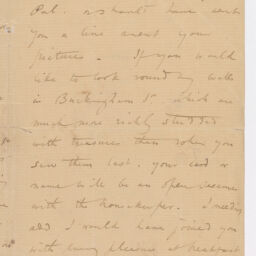 Pal. or should have sent
you a line anent your
picture. If you would
like to look round my walls
in Buckingham St which are
much more richly studded
with treasures than when you
saw them last. your card or
name will be an open sesame
with the housekeeper. I needn't
add I would have joined you
with every pleasure at breakfast